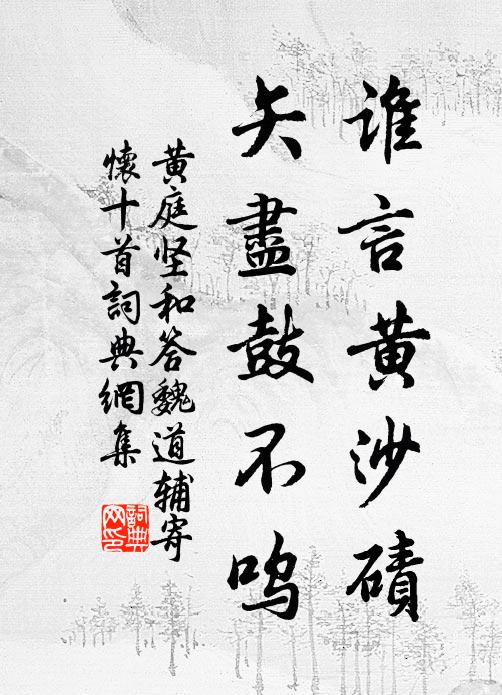 谁言黄沙磧
矢盡鼓不鸣
黄庭坚和答魏道辅寄
懷十首詞典網集
詞典
网印